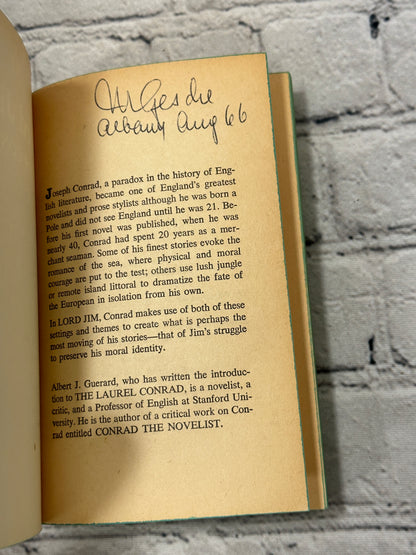 Albany Aug 66
Joseph Conrad, a paradox in the history of Eng-
lish literature, became one of England's greatest
novelists and prose stylists although he was born a
Pole and did not see England until he was 21. Be-
fore his first novel was published, when he was
nearly 40, Conrad had spent 20 years as a mer-
chant seaman. Some of his finest stories evoke the
romance of the sea, where physical and moral
courage are put to the test; others use lush jungle
or remote island littoral to dramatize the fate of
the European in isolation from his own.
In LORD JIM, Conrad makes use of both of these
settings and themes to create what is perhaps the
most moving of his stories—that of Jim's struggle
to preserve his moral identity.
Albert J. Guerard, who has written the introduc-
tion to THE LAUREL CONRAD, is a novelist, a
critic, and a Professor of English at Stanford Uni-
versity. He is the author of a critical work on Con-
rad entitled CONRAD THE NOVELIST.